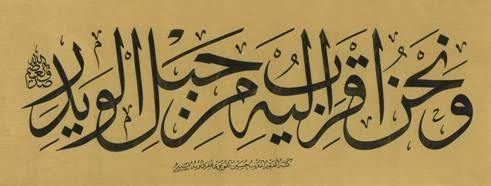 ونحن اقرب اليه من حبل الوريد
صدق الله العظيم